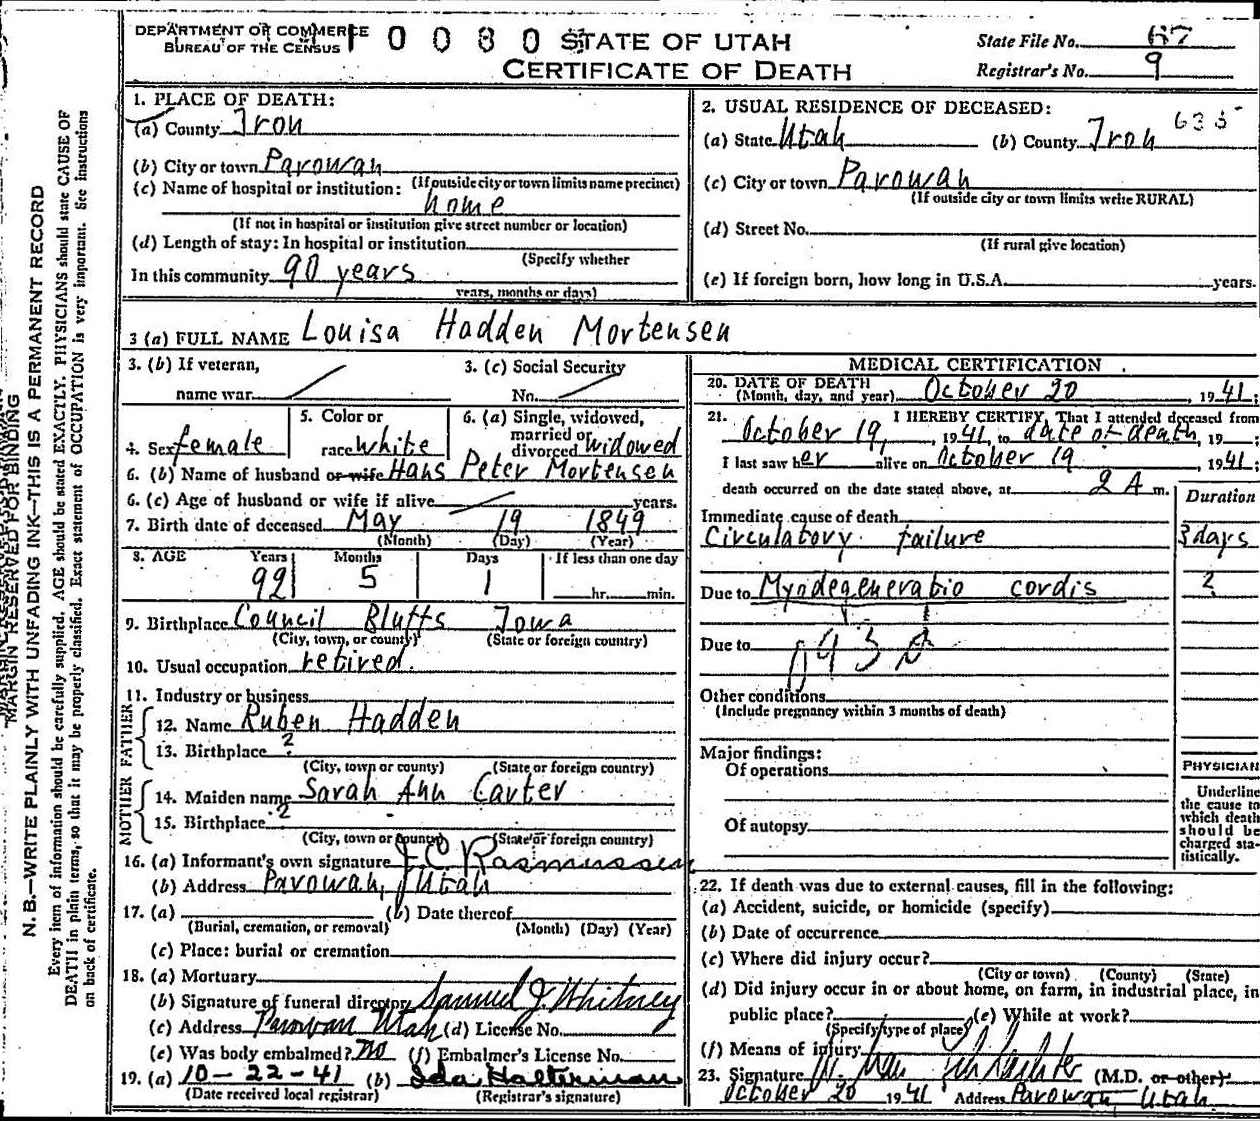 DEPARTMENT OF COMMERCE
BUREAU OF THE CENSUS
0 0 8 0
STATE OF UTAH
CERTIFICATE OF DEATH
State File No. 67
Registrar's No. 9
N. B.—WRITE PLAINLY WITH UNFADING INK—THIS IS A PERMANENT RECORD
MARGIN RESERVED FOR BINDING
Every item of information should be carefully supplied. AGE should be stated EXACTLY. PHYSICIANS should state CAUSE OF
DEATH in plain terms, so that it may be properly classified. Exact statement of OCCUPATION is very important. See instructions
on back of certificate.
1. PLACE OF DEATH:
(a) County Iron
(b) City or town Parowan
(If outside city or town limits name precinct)
(c) Name of hospital or institution:
home
(If not in hospital or institution give street number or location)
(d) Length of stay: In hospital or institution
(Specify whether
In this community 90 years
years, months or days)
2. USUAL RESIDENCE OF DECEASED:
635
(a) State Utah (b) County Iron
(c) City or town Parowan
(If outside city or town limits write RURAL)
(d) Street No.
(If rural give location)
(e) If foreign born, how long in U.S.A. years.
3 (a) FULL NAME Louisa Hadden Mortensen
3. (b) If veteran,
name war
3. (c) Social Security
No.
4. Sex female
5. Color or
race white
6. (a) Single, widowed,
married or
divorced widowed
6. (b) Name of husband or wife Hans Peter Mortensen
6. (c) Age of husband or wife if alive years.
7. Birth date of deceased May 19 1849
(Month) (Day) (Year)
8. AGE Years Months Days If less than one day
92 5 1 hr. min.
9. Birthplace Council Bluffs Iowa
(City, town, or county) (State or foreign country)
10. Usual occupation retired
11. Industry or business
FATHER
12. Name Ruben Hadden
13. Birthplace ?
(City, town or county) (State or foreign country)
MOTHER
14. Maiden name Sarah Ann Carter
15. Birthplace ?
(City, town or county) (State or foreign country)
16. (a) Informant's own signature J C Rasmussen
(b) Address Parowan, Utah
17. (a) (b) Date thereof
(Burial, cremation, or removal) (Month) (Day) (Year)
(c) Place: burial or cremation
18. (a) Mortuary
(b) Signature of funeral director Samuel J. Whitney
(c) Address Parowan Utah (d) License No.
(e) Was body embalmed? no (f) Embalmer's License No.
19. (a) 10-22-41 (b) Ida Halterman
(Date received local registrar) (Registrar's signature)
MEDICAL CERTIFICATION
20. DATE OF DEATH
(Month, day, and year) October 20, 1941;
21. I HEREBY CERTIFY, That I attended deceased from
October 19, 1941, to date of death, 19
I last saw her alive on October 19 1941;
death occurred on the date stated above, at 2 A m.
Duration
Immediate cause of death
Circulatory failure 3 days
Due to Myodegeneratio cordis ?
Due to
Other conditions
(Include pregnancy within 3 months of death)
Major findings:
Of operations
Of autopsy
PHYSICIAN
Underline
the cause to
which death
should be
charged sta-
tistically.
22. If death was due to external causes, fill in the following:
(a) Accident, suicide, or homicide (specify)
(b) Date of occurrence
(c) Where did injury occur?
(City or town) (County) (State)
(d) Did injury occur in or about home, on farm, in industrial place, in
public place? (e) While at work?
(Specify type of place)
(f) Means of injury
23. Signature (M.D. or other)
October 20 1941 Address Parowan, Utah